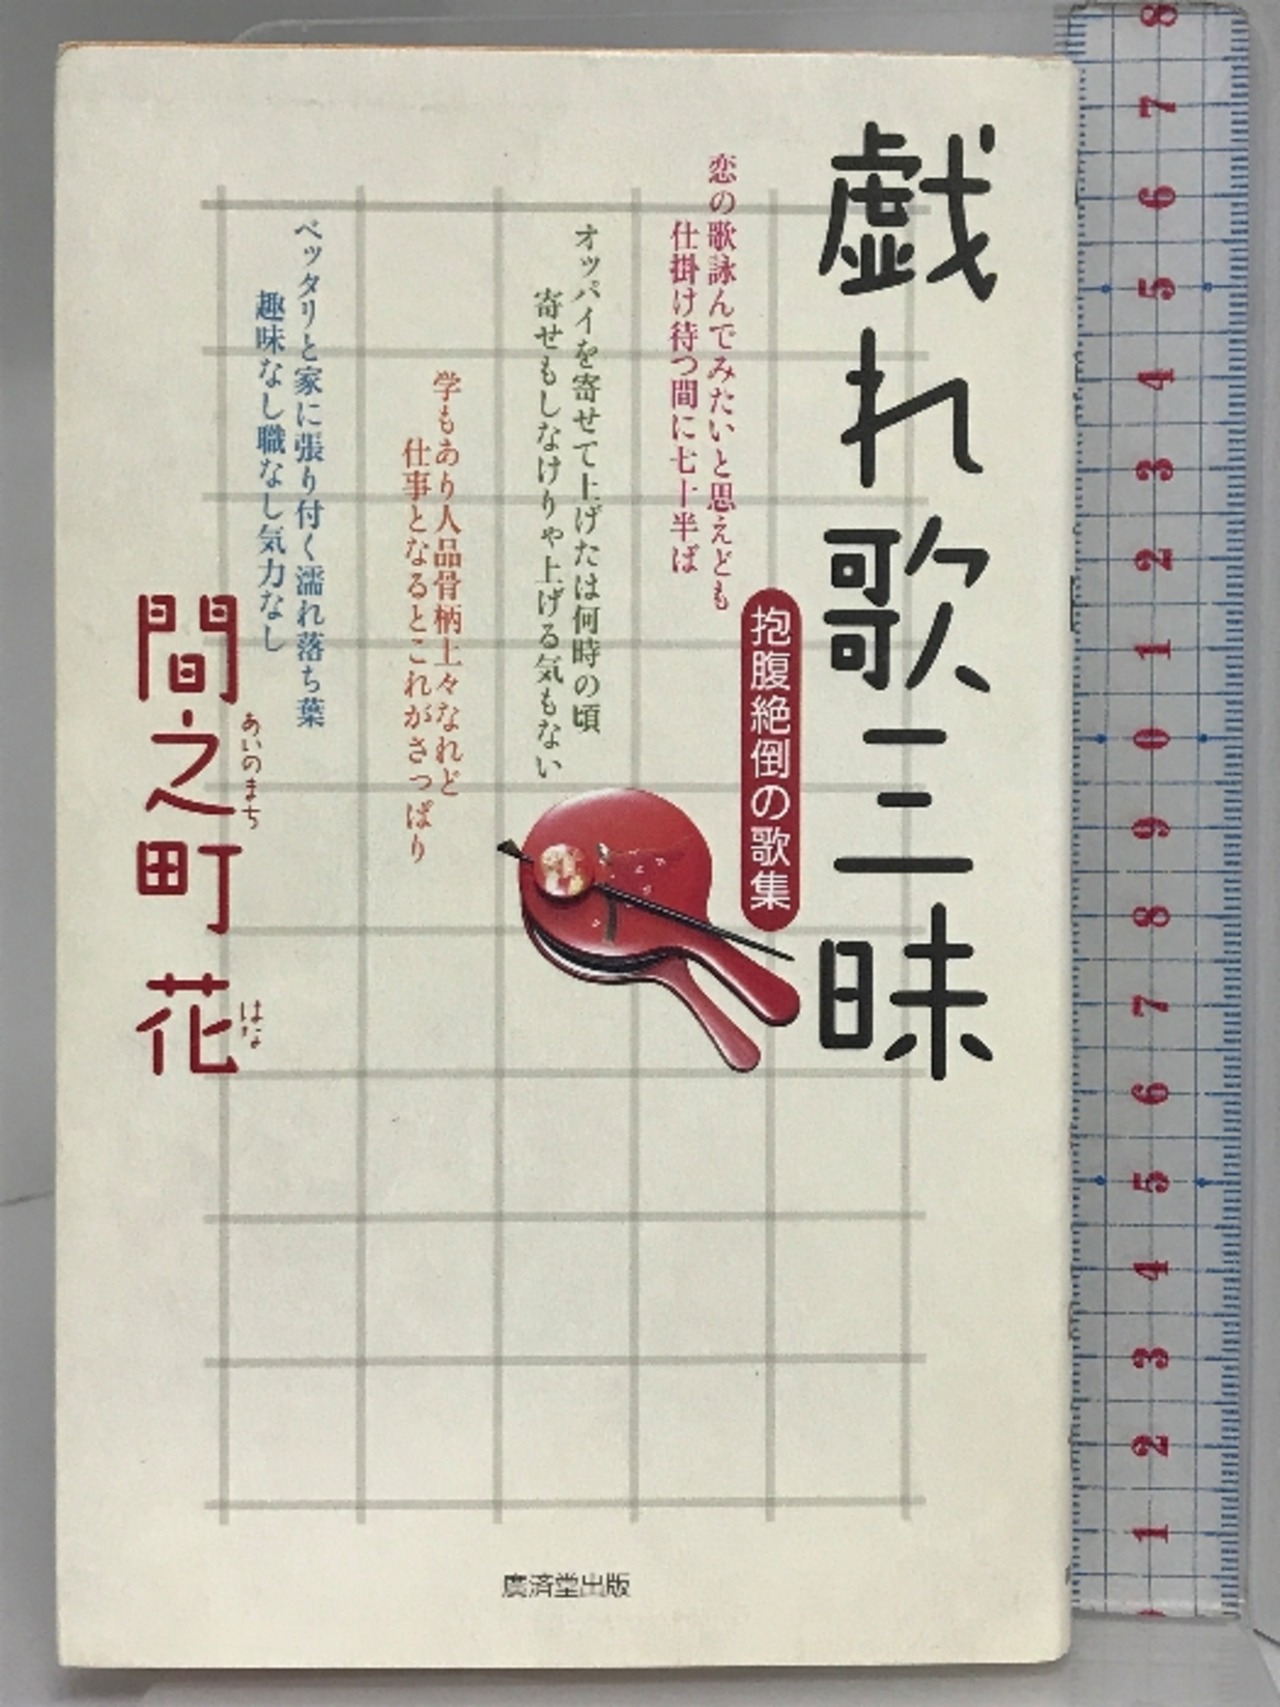 戯れ歌三昧
抱腹絶倒の歌集
恋の歌詠んでみたいと思えども
仕掛け待つ間に七十半ば
オッパイを寄せて上げたは何時の頃
寄せもしなけりゃ上げる気もない
学もあり人品骨柄上々なれど
仕事となるとこれがさっぱり
ベッタリと家に張り付く濡れ落ち葉
趣味なし職なし気力なし
間之町 花
あいのまち はな
廣済堂出版
8
7
6
5
4
3
2
1
0
9
8
7
6
5
4
3
2
1